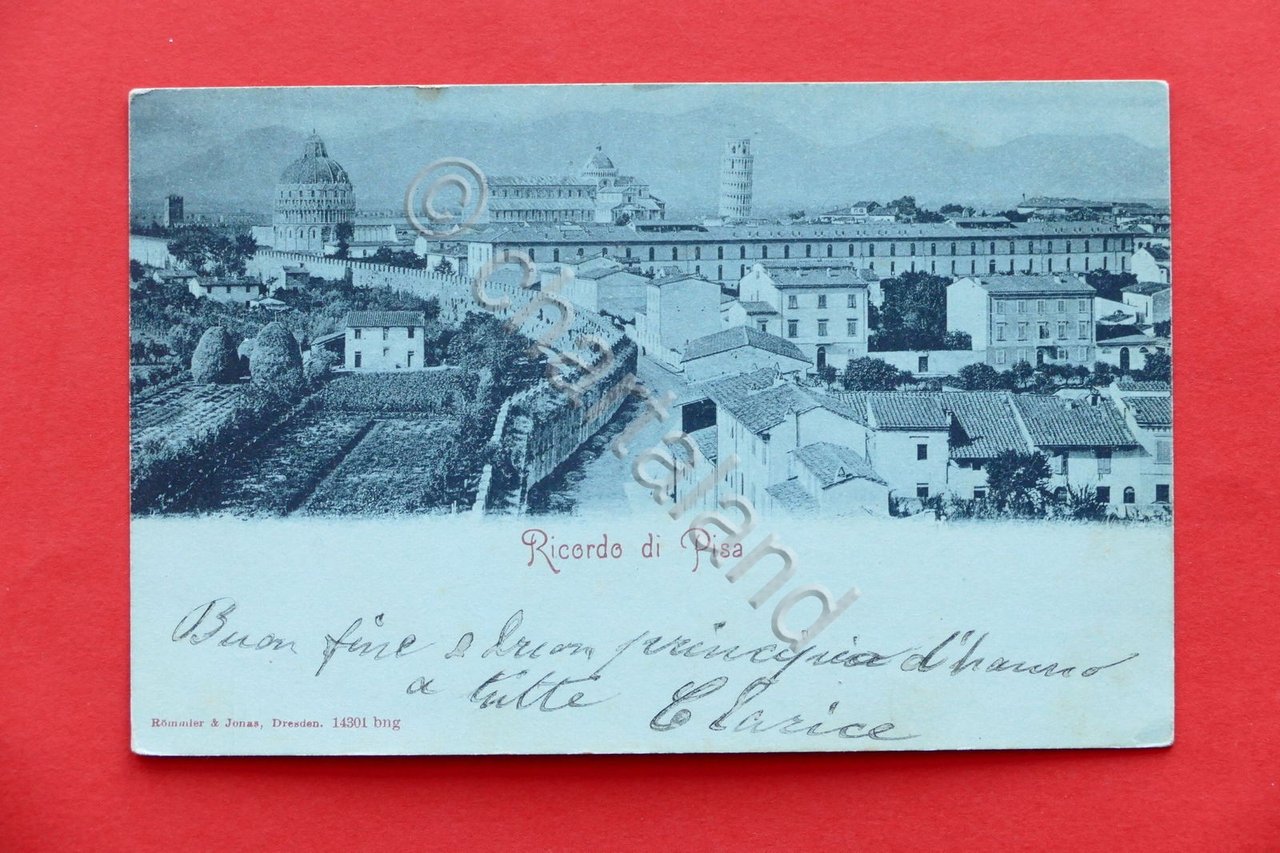 © chartaland
Ricordo di Pisa
Buon fine e buon principio d'hanno
a tutte Clarice
Römmler & Jonas, Dresden. 14301 bng